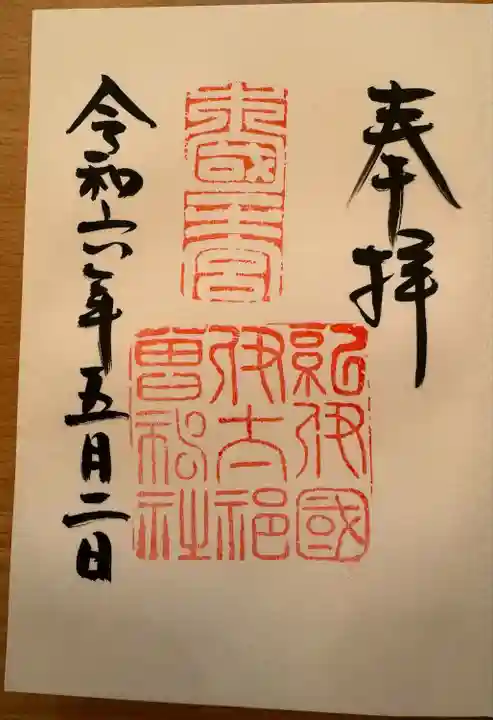 奉拝
紀伊國
伊太祁
曽神社
令和六年五月二日